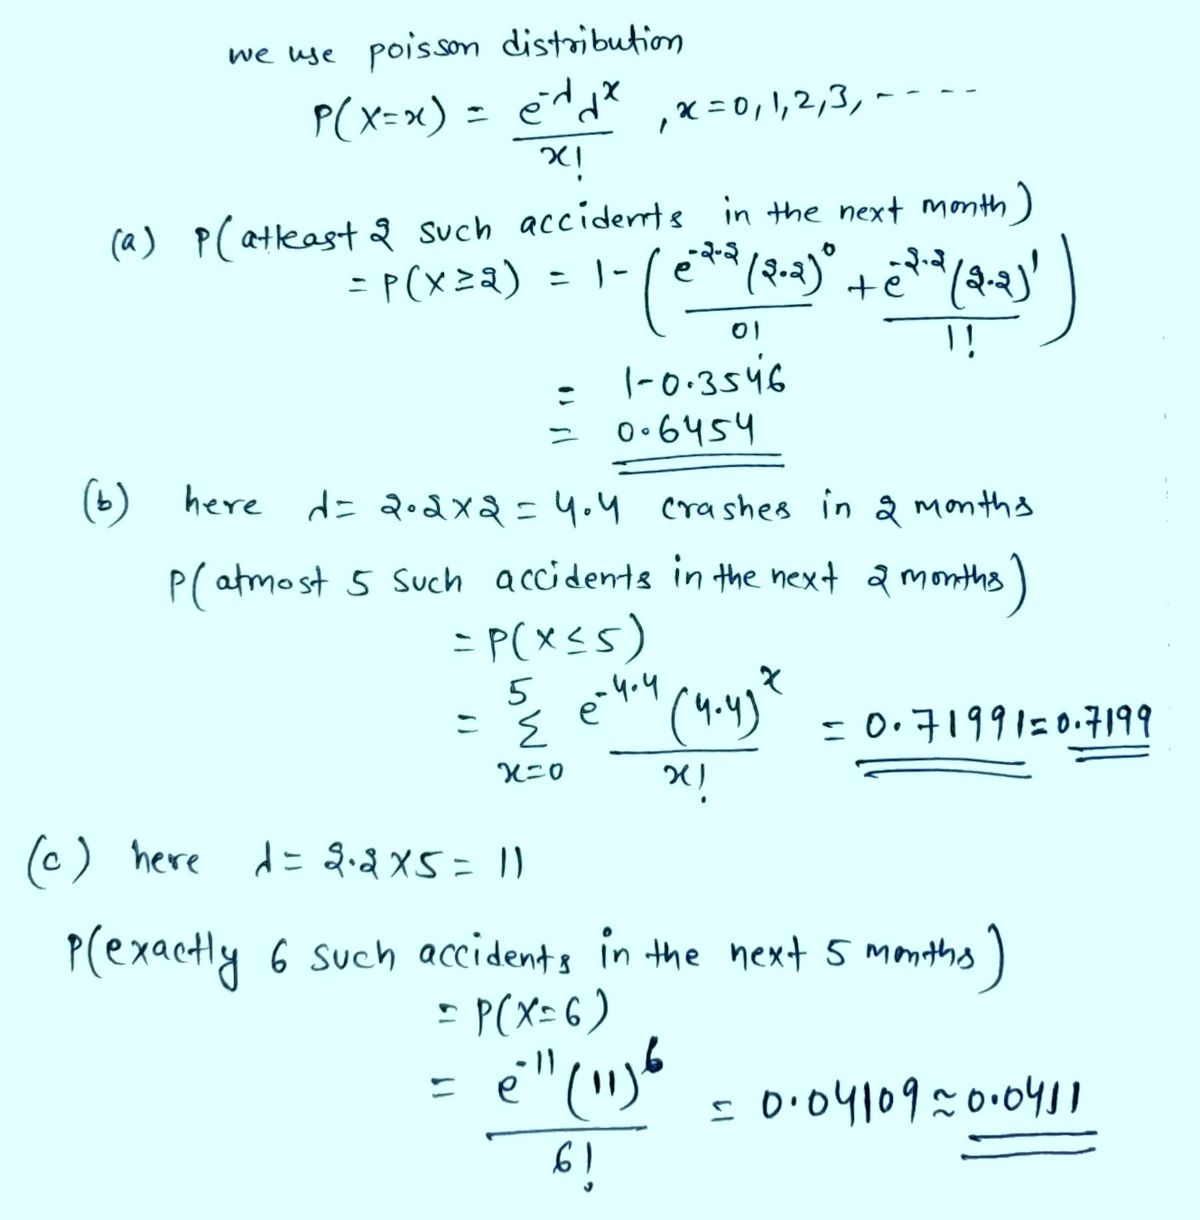 we use poisson distribution
P(X=x) = e^-λ λ^x / x! , x=0,1,2,3,----
(a) P(atleast 2 such accidents in the next month)
= P(X≥2) = 1-( e^-2.2 (2.2)^0 / 0! + e^-2.2 (2.2)^1 / 1! )
= 1-0.3546
= 0.6454
(b) here λ= 2.2×2=4.4 crashes in 2 months
P(atmost 5 such accidents in the next 2 months)
= P(X≤5)
= 5 Σ x=0 e^-4.4 (4.4)^x / x! = 0.71991=0.7199
(c) here λ= 2.2×5= 11
P(exactly 6 such accidents in the next 5 months)
= P(X=6)
= e^-11 (11)^6 / 6! = 0.04109≈0.0411